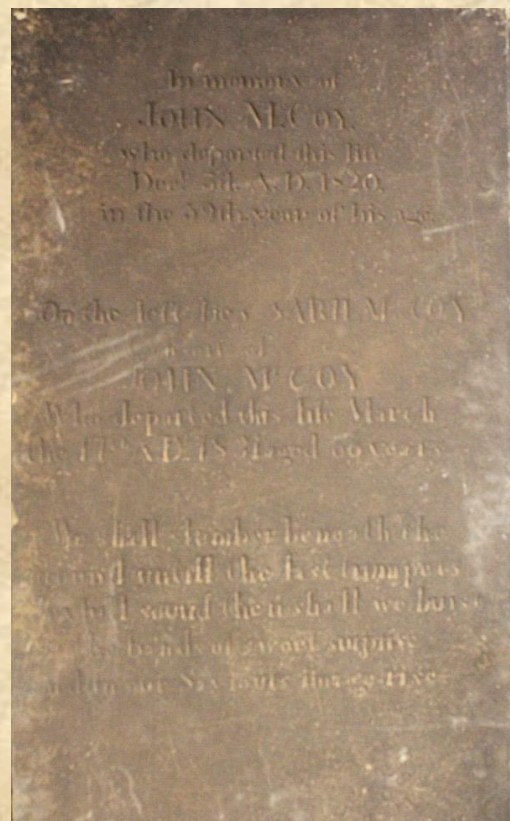 In memory of
JOHN McCOY.
who departed this life
Decr 3d. A.D. 1820.
in the 59th year of his age.
On the left lies SARH McCOY
wife of
JOHN McCOY
Who departed this life March
the 17th A.D. 1831 aged 66 years
We shall slumber beneath the
ground untill the last trumpets
shall sound then shall we burst
the bands of sweet surprise
and in our Saviours image rise